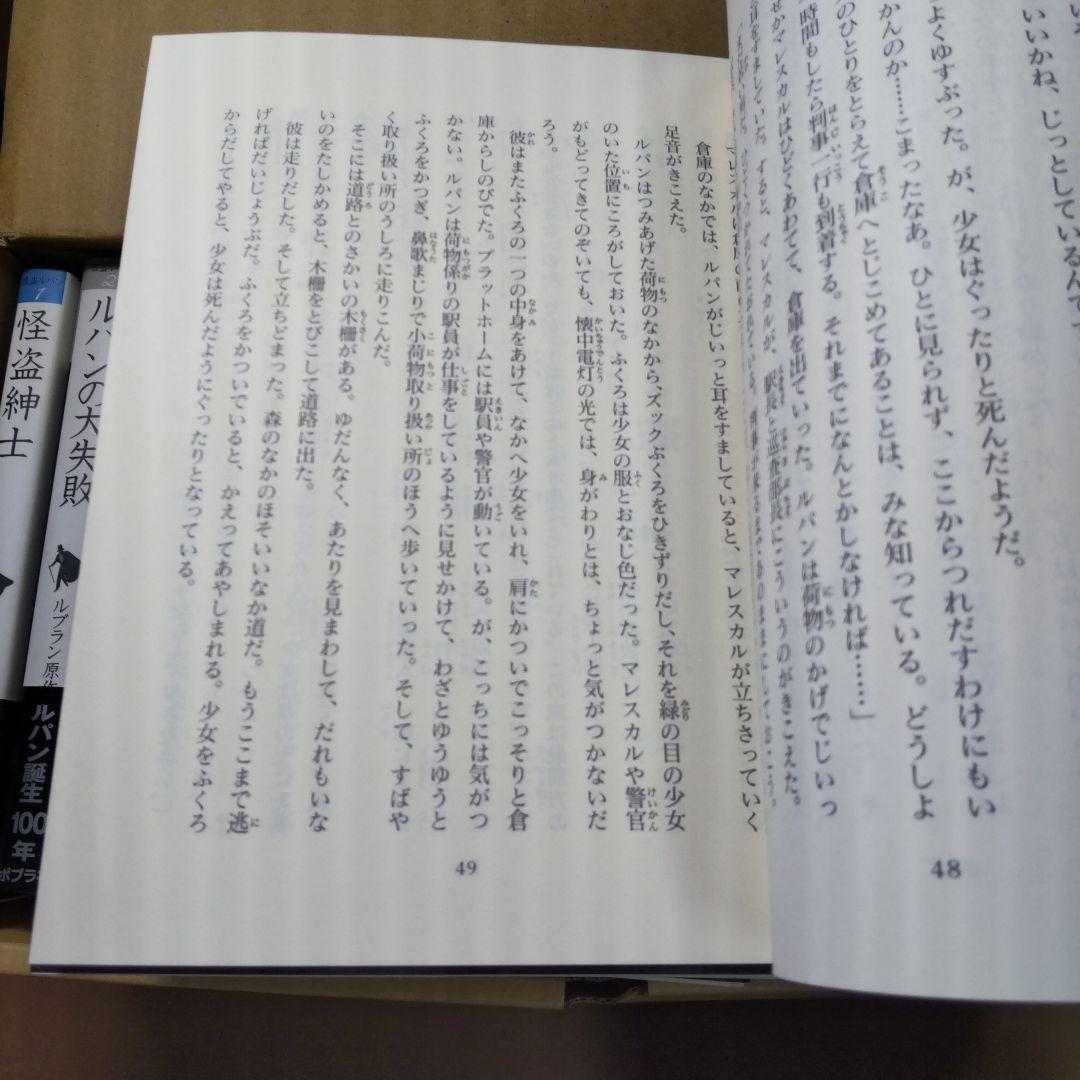 いいかね、じっとしているんで
よくゆすぶった。が、少女はぐったりと死んだようだ。
かんのか……こまったなあ。ひとに見られず、ここからつれだすわけにもい
のひとりをとらえて倉庫へとじこめてあることは、みな知っている。どうしよ
時間もしたら判事一行も到着する。それまでになんとかしなければ……」
せかマレスカルはひどくあわてて、倉庫を出ていった。ルパンは荷物のかげでじいっ
耳をすましていた。すると、マレスカルが、駅長と巡査部長にこういうのがきこえた。
48
倉庫のなかでは、ルパンがじいっと耳をすましていると、マレスカルが立ちさっていく
足音がきこえた。
ルパンはつみあげた荷物のなかから、ズックぶくろをひきずりだし、それを緑の目の少女
のいた位置にころがしておいた。ふくろは少女の服とおなじ色だった。マレスカルや警官
がもどってきてのぞいても、懐中電灯の光では、身がわりとは、ちょっと気がつかないだ
ろう。
彼はまたふくろの一つの中身をあけて、なかへ少女をいれ、肩にかついでこっそりと倉
庫からしのびでた。プラットホームには駅員や警官が動いている。が、こっちには気がつ
かない。ルパンは荷物係りの駅員が仕事をしているように見せかけて、わざとゆうゆうと
ふくろをかつぎ、鼻歌まじりで小荷物取り扱い所のほうへ歩いていった。そして、すばや
く取り扱い所のうしろに走りこんだ。
そこには道路とのさかいの木柵がある。ゆだんなく、あたりを見まわして、だれもいな
いのをたしかめると、木柵をとびこして道路に出た。
彼は走りだした。そして立ちどまった。森のなかのほそいいなか道だ。もうここまで逃
げればだいじょうぶだ。ふくろをかついでいると、かえってあやしまれる。少女をふくろ
からだしてやると、少女は死んだようにぐったりとなっている。
49
ルパンの大失敗
ルブラン原作
ルパン誕生100年
ポプラ
怪盗ルパン
1
怪盗紳士